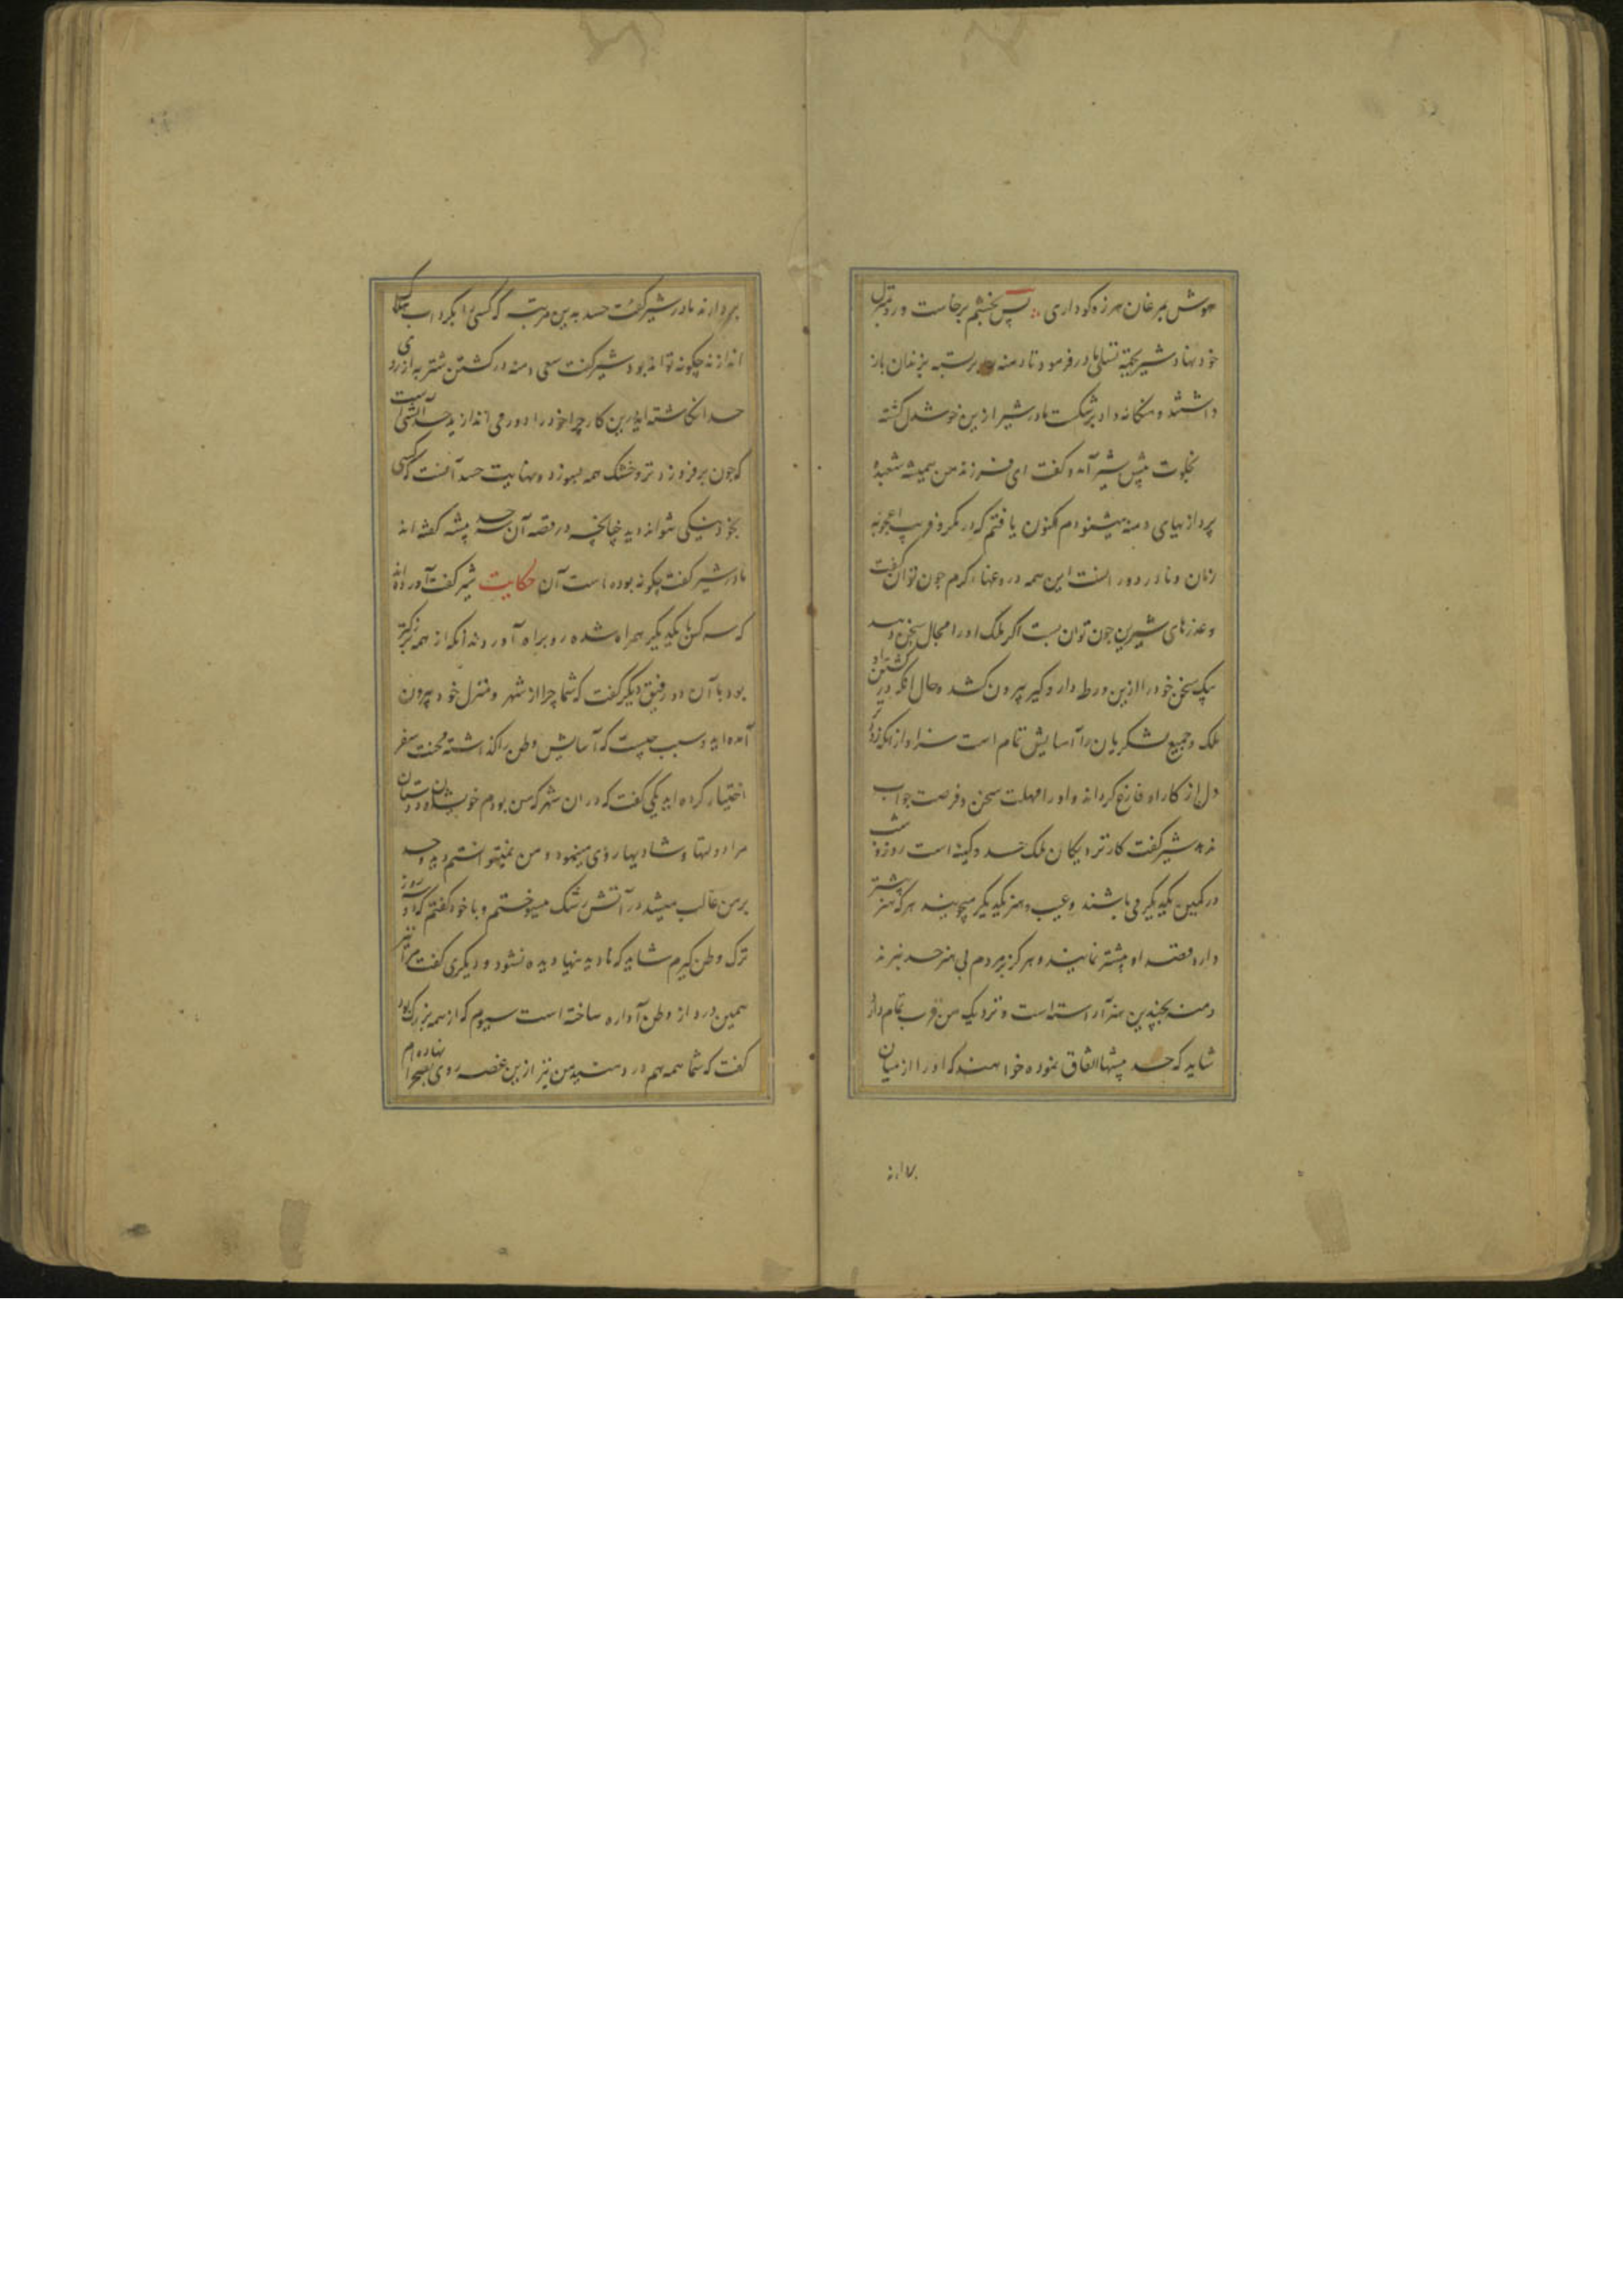 هوش مرغان هرزه کو داری ∴ پس بخشم برخاست و رو بمنزل
خود نهاد شیر بجهة تسلی مادر فرمود تا دمنه را بسته بزندان باز
داشتند و هنکامه داد بشکست مادر شیر ازین خوشدل کشته
بخلوت پیش شیر آمد و کفت ای فرزند من همیشه شعبده
پردازیهای دمنه میشنودم اکنون یافتم که در مکر و فریب اعجوبه
زمان و نادر دور انست این همه دروغهاء کرم جون توان کفت
و عذرهای شیرین جون توان بست اکر ملک او را مجال سخن دهد
بیک سخن خود را ازین ورطه دار و کیر بیرون کشد و حال انکه در کشتن او
ملک و جمیع لشکریان را آسایش تمام است سزاوار انکه زود
دل از کار او فارغ کرداند و او را مهلت سخن و فرصت جواب
ندهد شیر کفت کار نزدیکان ملک حسد و کینه است روز و شب
در کمین یکدیکر می باشند و عیب و هنر یکدیکر میجویند هر که هنر بیشتر
دارد قصد او بیشتر نمایند و هرکز بمردم بی هنر حسد نبرند
دمنه بجندین هنر آراسته است و نزدیک من قرب تمام دارد
شاید که حسد پیشها اتفاق نموده خواهند که او را از میان
بردارند
بردارند مادر شیر کفت حسد بدین مرتبه که کسی را بکرداب هلاک
اندازند چکونه تواند بود شیر کفت سعی دمنه در کشتن شتربه از روی
حسد انکاشته اید ازین کار چرا خود را دور می اندازید حسد آتشی است
که جون برفروزد تر و خشک همه بسوزد و نهایت حسد آنست که کسی
بخود نیکی نتواند دید چنانچه در قصه آن سه حسد پیشه کفته اند
مادر شیر کفت چکونه بوده است آن حکایت شیر کفت آورده اند
که سه کس با یکدیکر همراه شده رو براه آوردند انکه از همه بزرکتر
بود با آن دو رفیق دیکر کفت که شما چرا از شهر و منزل خود بیرون
آمده اید و سبب چیست که آسایش وطن را کذاشته محنت سفر
اختیار کرده اید یکی کفت که در ان شهر که من بودم خویشان و دوستان
مرا دولتها و شادیها روی مینمود و من نمیتوانستم دید و حسد
بر من غالب میشد در آتش رشک میسوختم و با خود کفتم که دو روز
ترک وطن کیرم شاید که نادیدنیها دیده نشود و دیکری کفت مرا نیز
همین درد از وطن آواره ساخته است سیوم که از همه بزرک بود
کفت که شما همه هم درد منید من نیز ازین غصه روی بصحرا نهاده ام